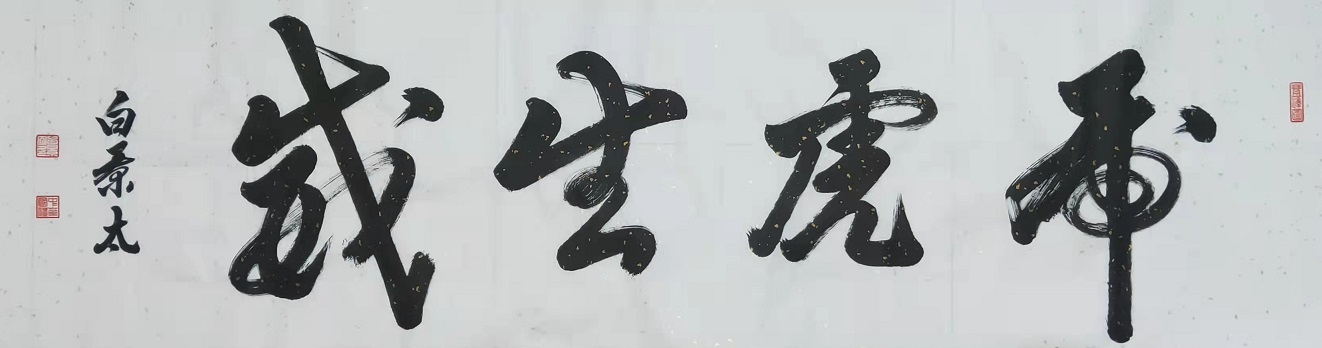 虎虎生威
白景太